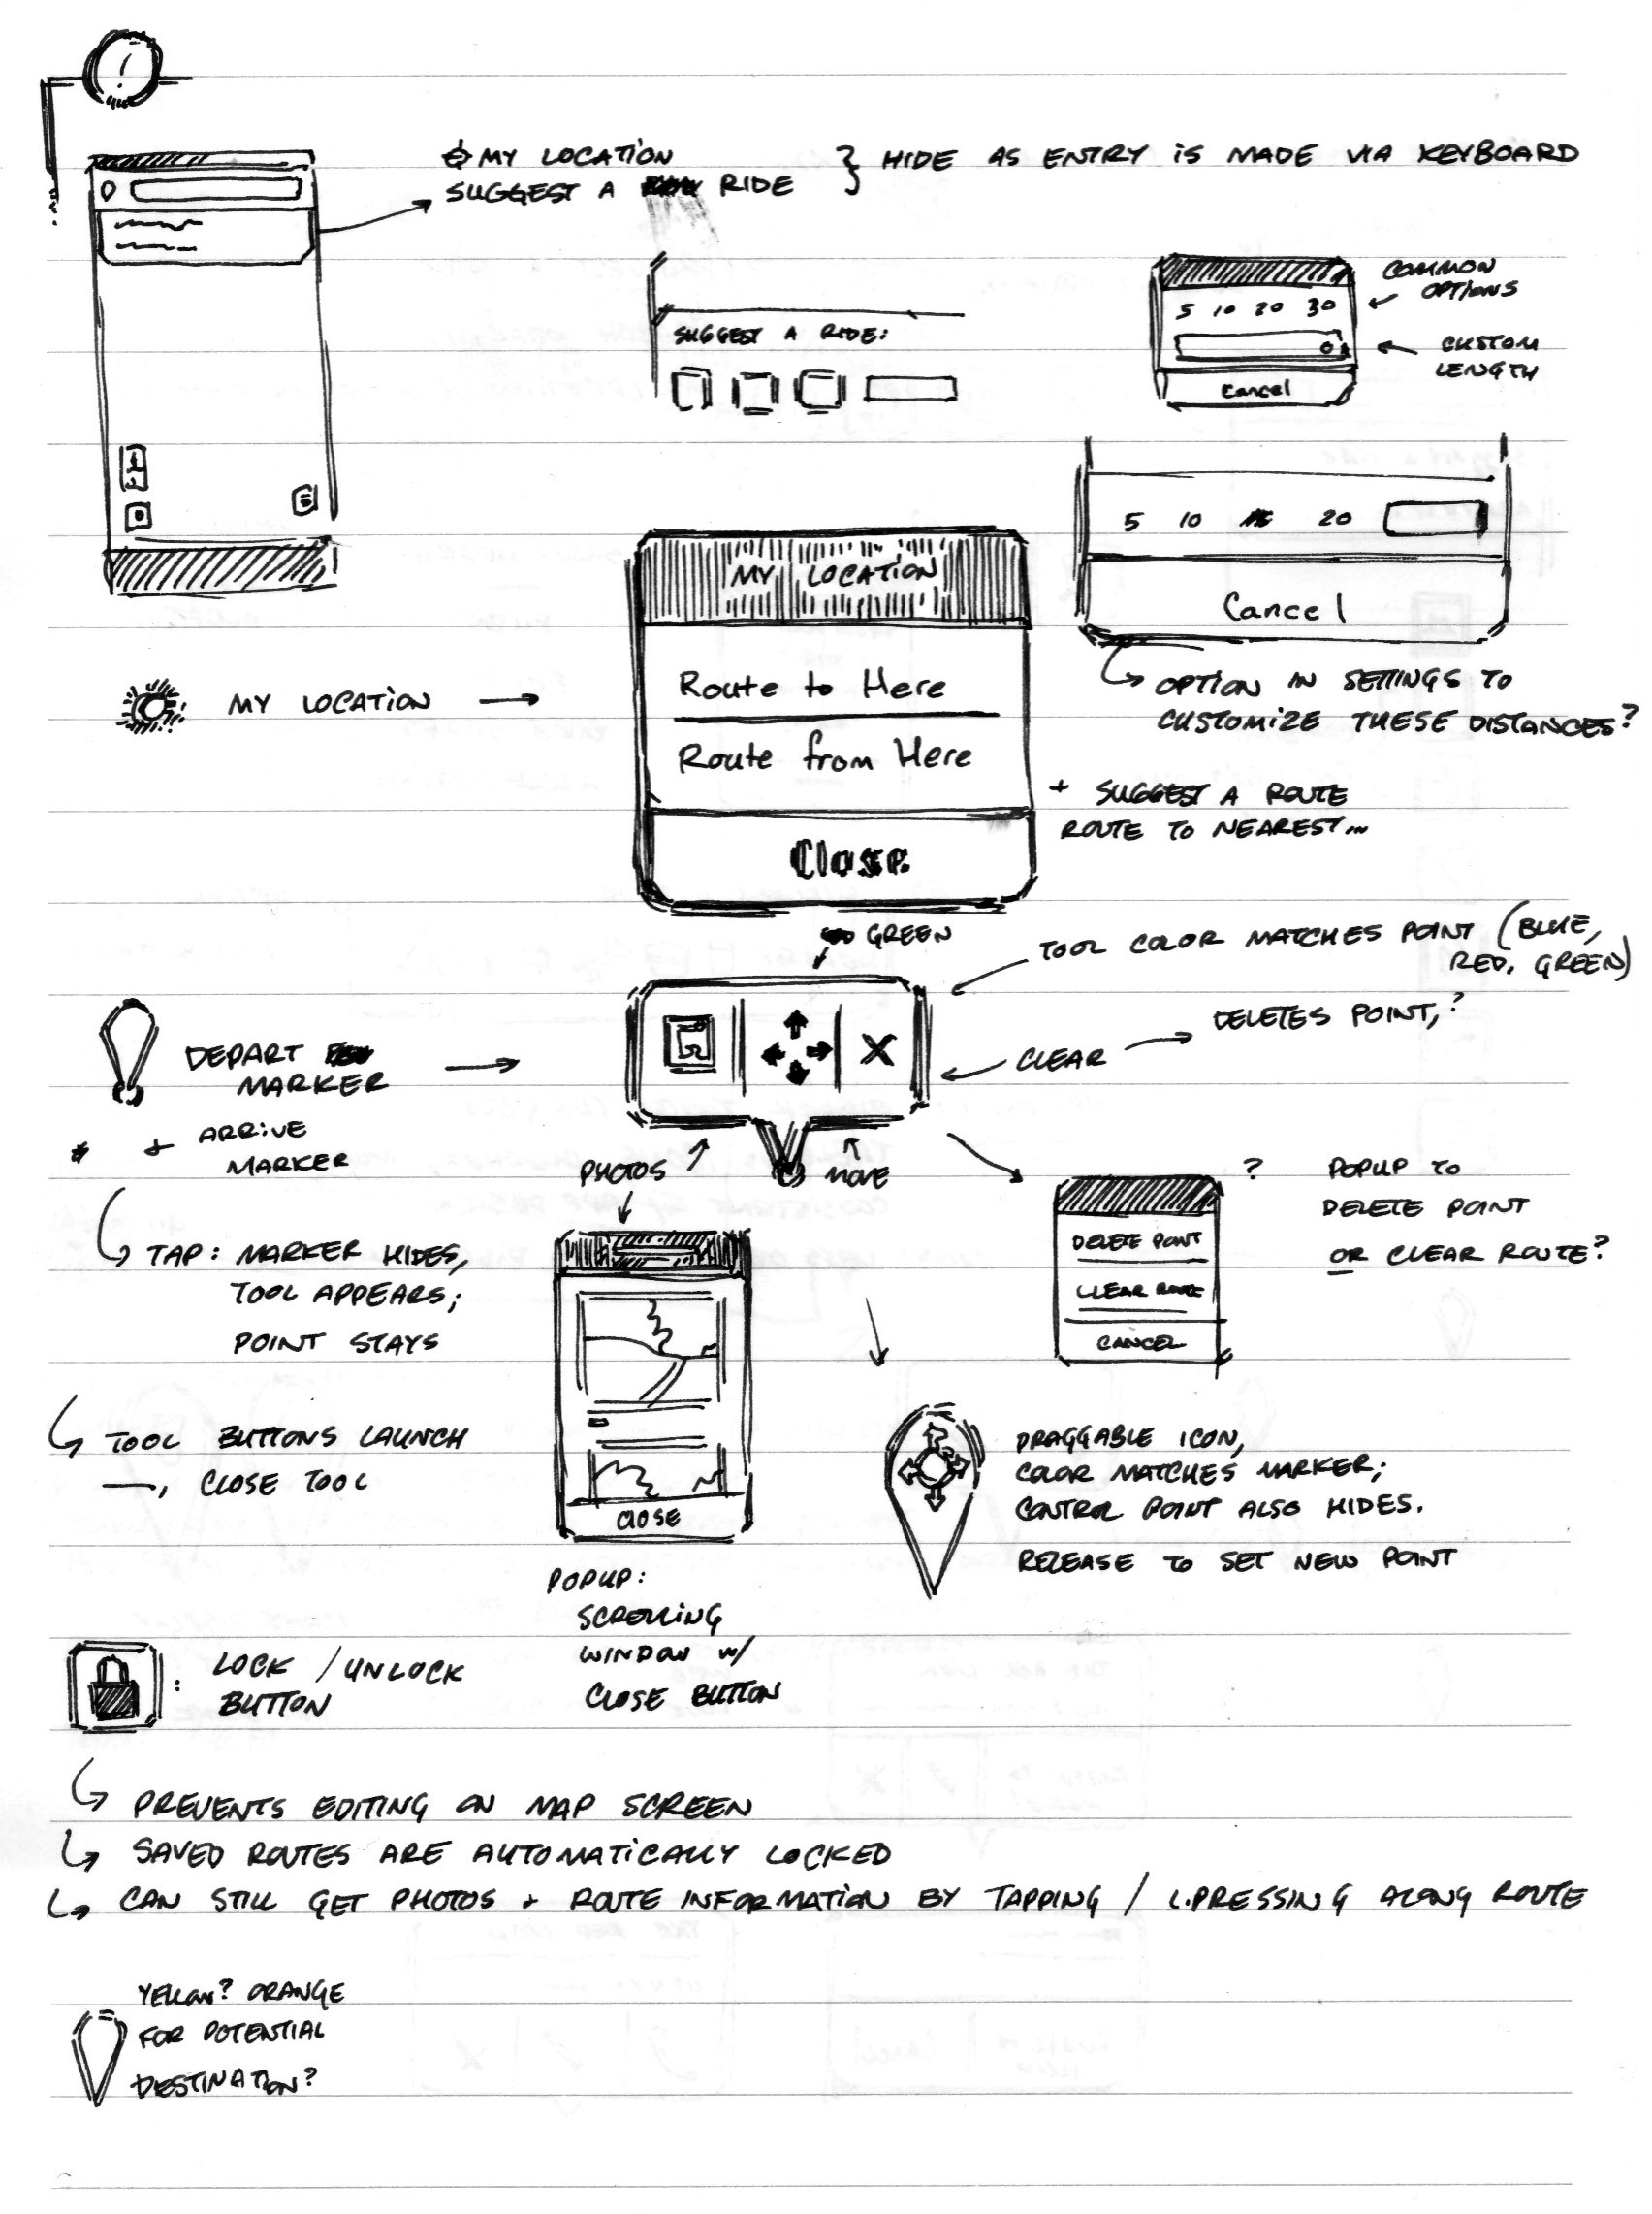 MY LOCATION
SUGGEST A RIDE
} HIDE AS ENTRY IS MADE VIA KEYBOARD
SUGGEST A RIDE:
5 10 20 30
Cancel
COMMON
OPTIONS
CUSTOM
LENGTH
5 10 20
Cancel
OPTION IN SETTINGS TO
CUSTOMIZE THESE DISTANCES?
MY LOCATION
MY LOCATION
Route to Here
Route from Here
Close
+ SUGGEST A ROUTE
ROUTE TO NEAREST...
GREEN
TOOL COLOR MATCHES POINT (BLUE,
RED, GREEN)
DELETES POINT,?
CLEAR
X
DEPART
MARKER
* + ARRIVE
MARKER
PHOTOS
MOVE
TAP: MARKER HIDES,
TOOL APPEARS;
POINT STAYS
DELETE POINT
CLEAR ROUTE
CANCEL
? POPUP TO
DELETE POINT
OR CLEAR ROUTE?
TOOL BUTTONS LAUNCH
—, CLOSE TOOL
CLOSE
DRAGGABLE ICON,
COLOR MATCHES MARKER;
CONTROL POINT ALSO HIDES.
RELEASE TO SET NEW POINT
POPUP:
SCROLLING
WINDOW W/
CLOSE BUTTON
: LOCK / UNLOCK
BUTTON
PREVENTS EDITING ON MAP SCREEN
SAVED ROUTES ARE AUTOMATICALLY LOCKED
CAN STILL GET PHOTOS + ROUTE INFORMATION BY TAPPING / L.PRESSING ALONG ROUTE
YELLOW? ORANGE
FOR POTENTIAL
DESTINATION?